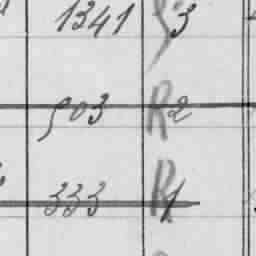 1341 3
903 R2
333 R1